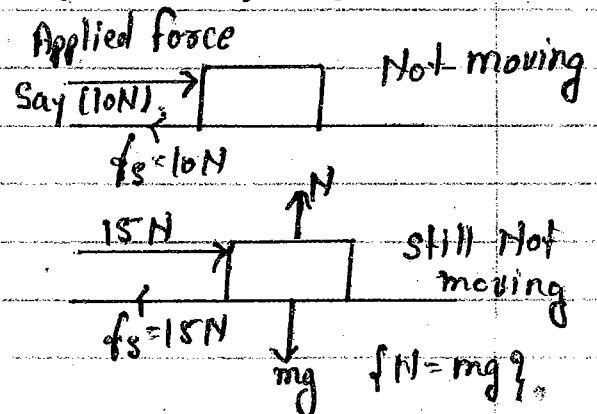 Applied force
Say (10N).
Not moving
fs=10N
N
15 N
Still Not
moving
fs=15N
mg
{N=mg}.